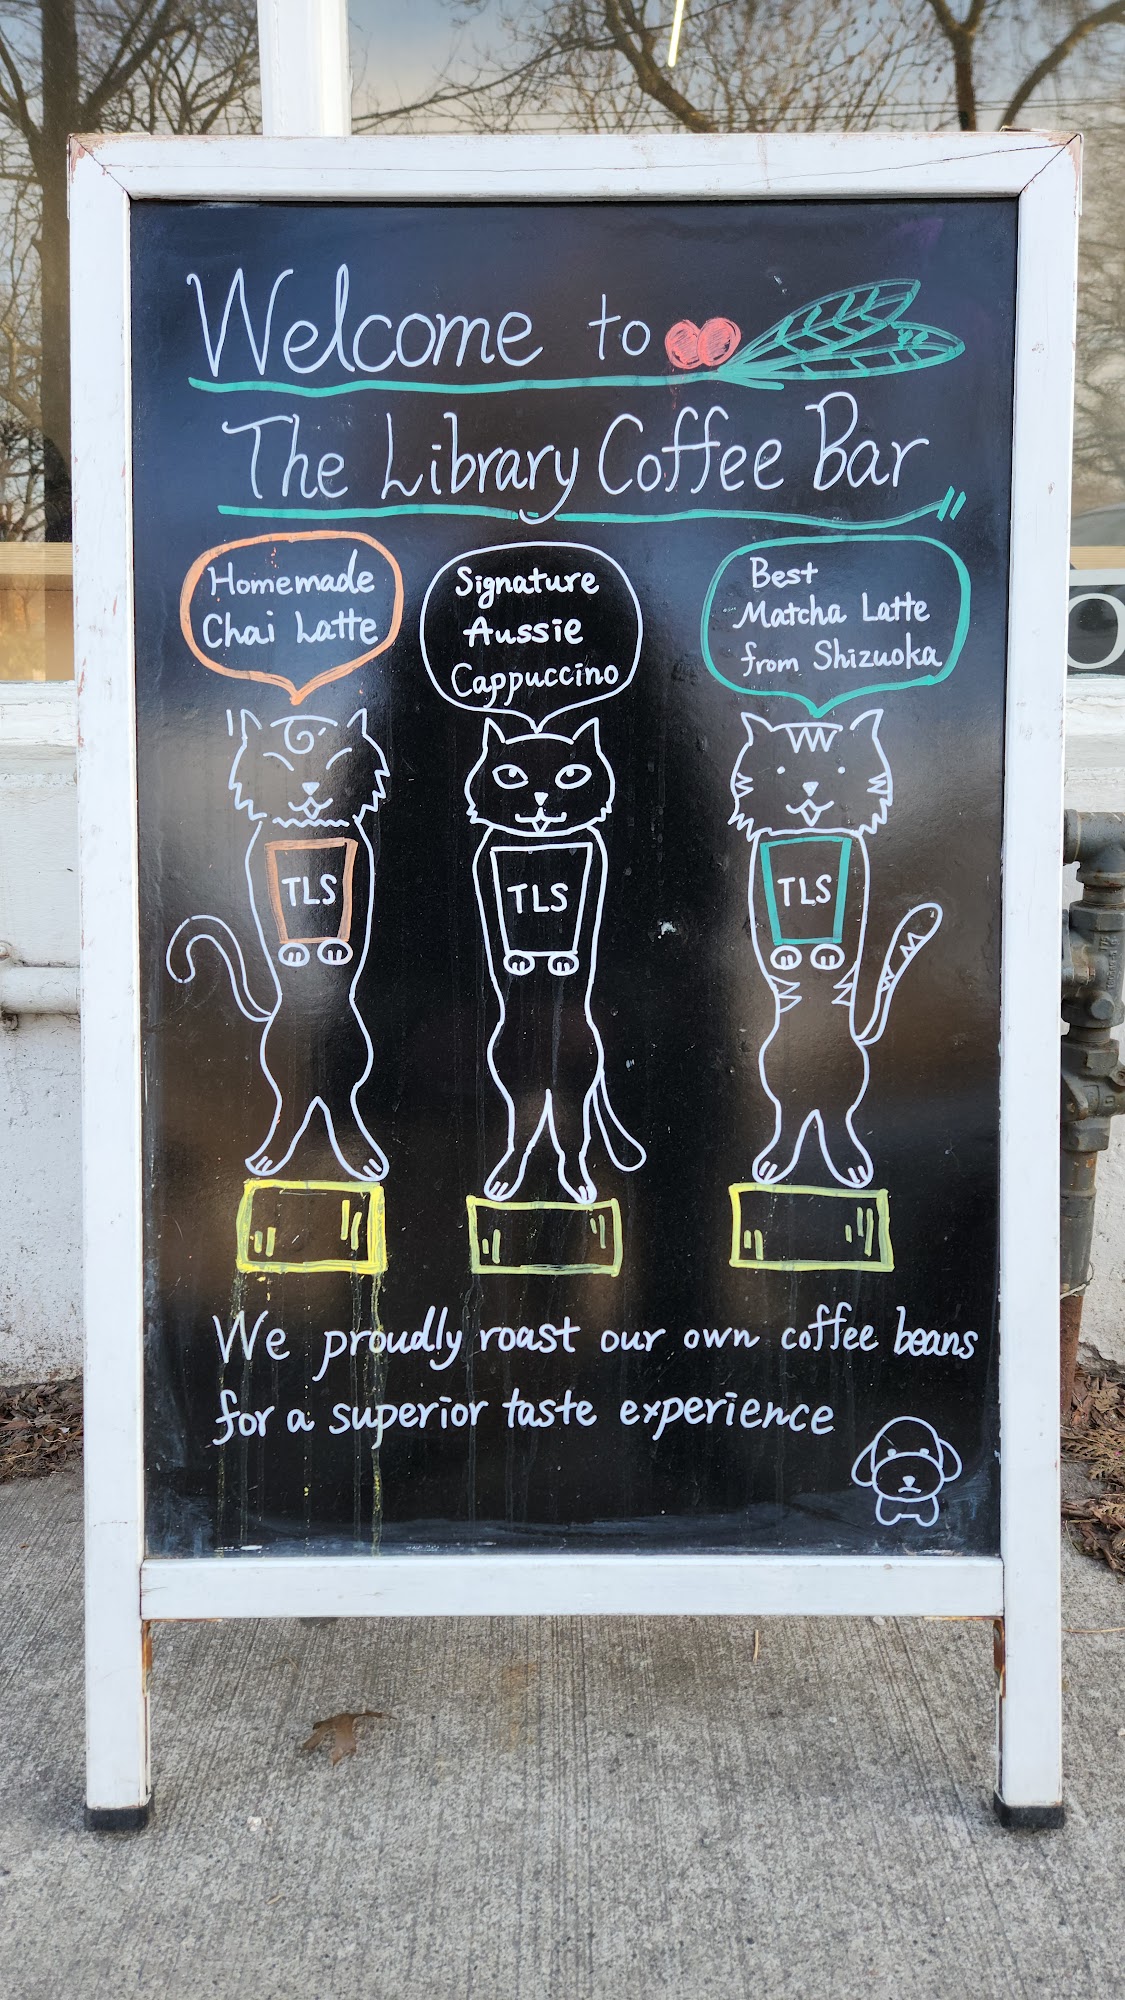 Welcome to
The Library Coffee Bar
Homemade
Chai Latte
Signature
Aussie
Cappuccino
Best
Matcha Latte
from Shizuoka
TLS
TLS
TLS
We proudly roast our own coffee beans
for a superior taste experience